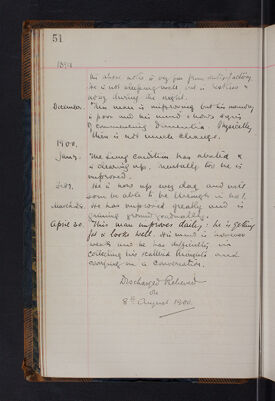 51
1899
his above notes is very far from satisfactory.
He is not sleeping well but is restless &
noisy during the night.
December. This man is improving but his memory
is poor and his mind shows signs
of commencing Dementia. Physically,
there is not much change.
1900.
Jany. The lung condition has abated &
is clearing up. Mentally too he is
improved.
Feby. He is now up every day and will
soon be able to be through in No 1.
March. He has improved greatly and is
gaining ground gradually.
April 30. This man improves daily: he is getting
fat & looks well. His mind is however
weak and he has difficulty in
collecting his scattered thoughts and
carrying on a conversation.
Discharged Relieved
on
8th August 1900.